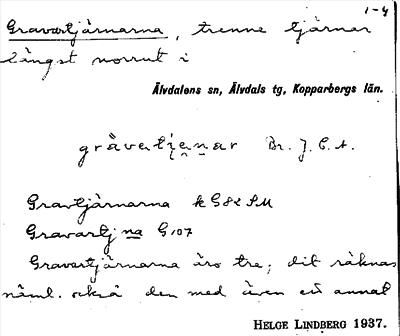 1-4
Gravartjärnarna, trenne tjärnar
längst norrut i
Älvdalens sn, Älvdals tg, Kopparbergs län.
gråvatjenar Br. J. E. A.
Gravtjärnarna k G82 SM
Gravartj na G107
Gravartjärnarna äro tre; dit räknas
näml. också den med även ett annat
HELGE LINDBERG 1937.